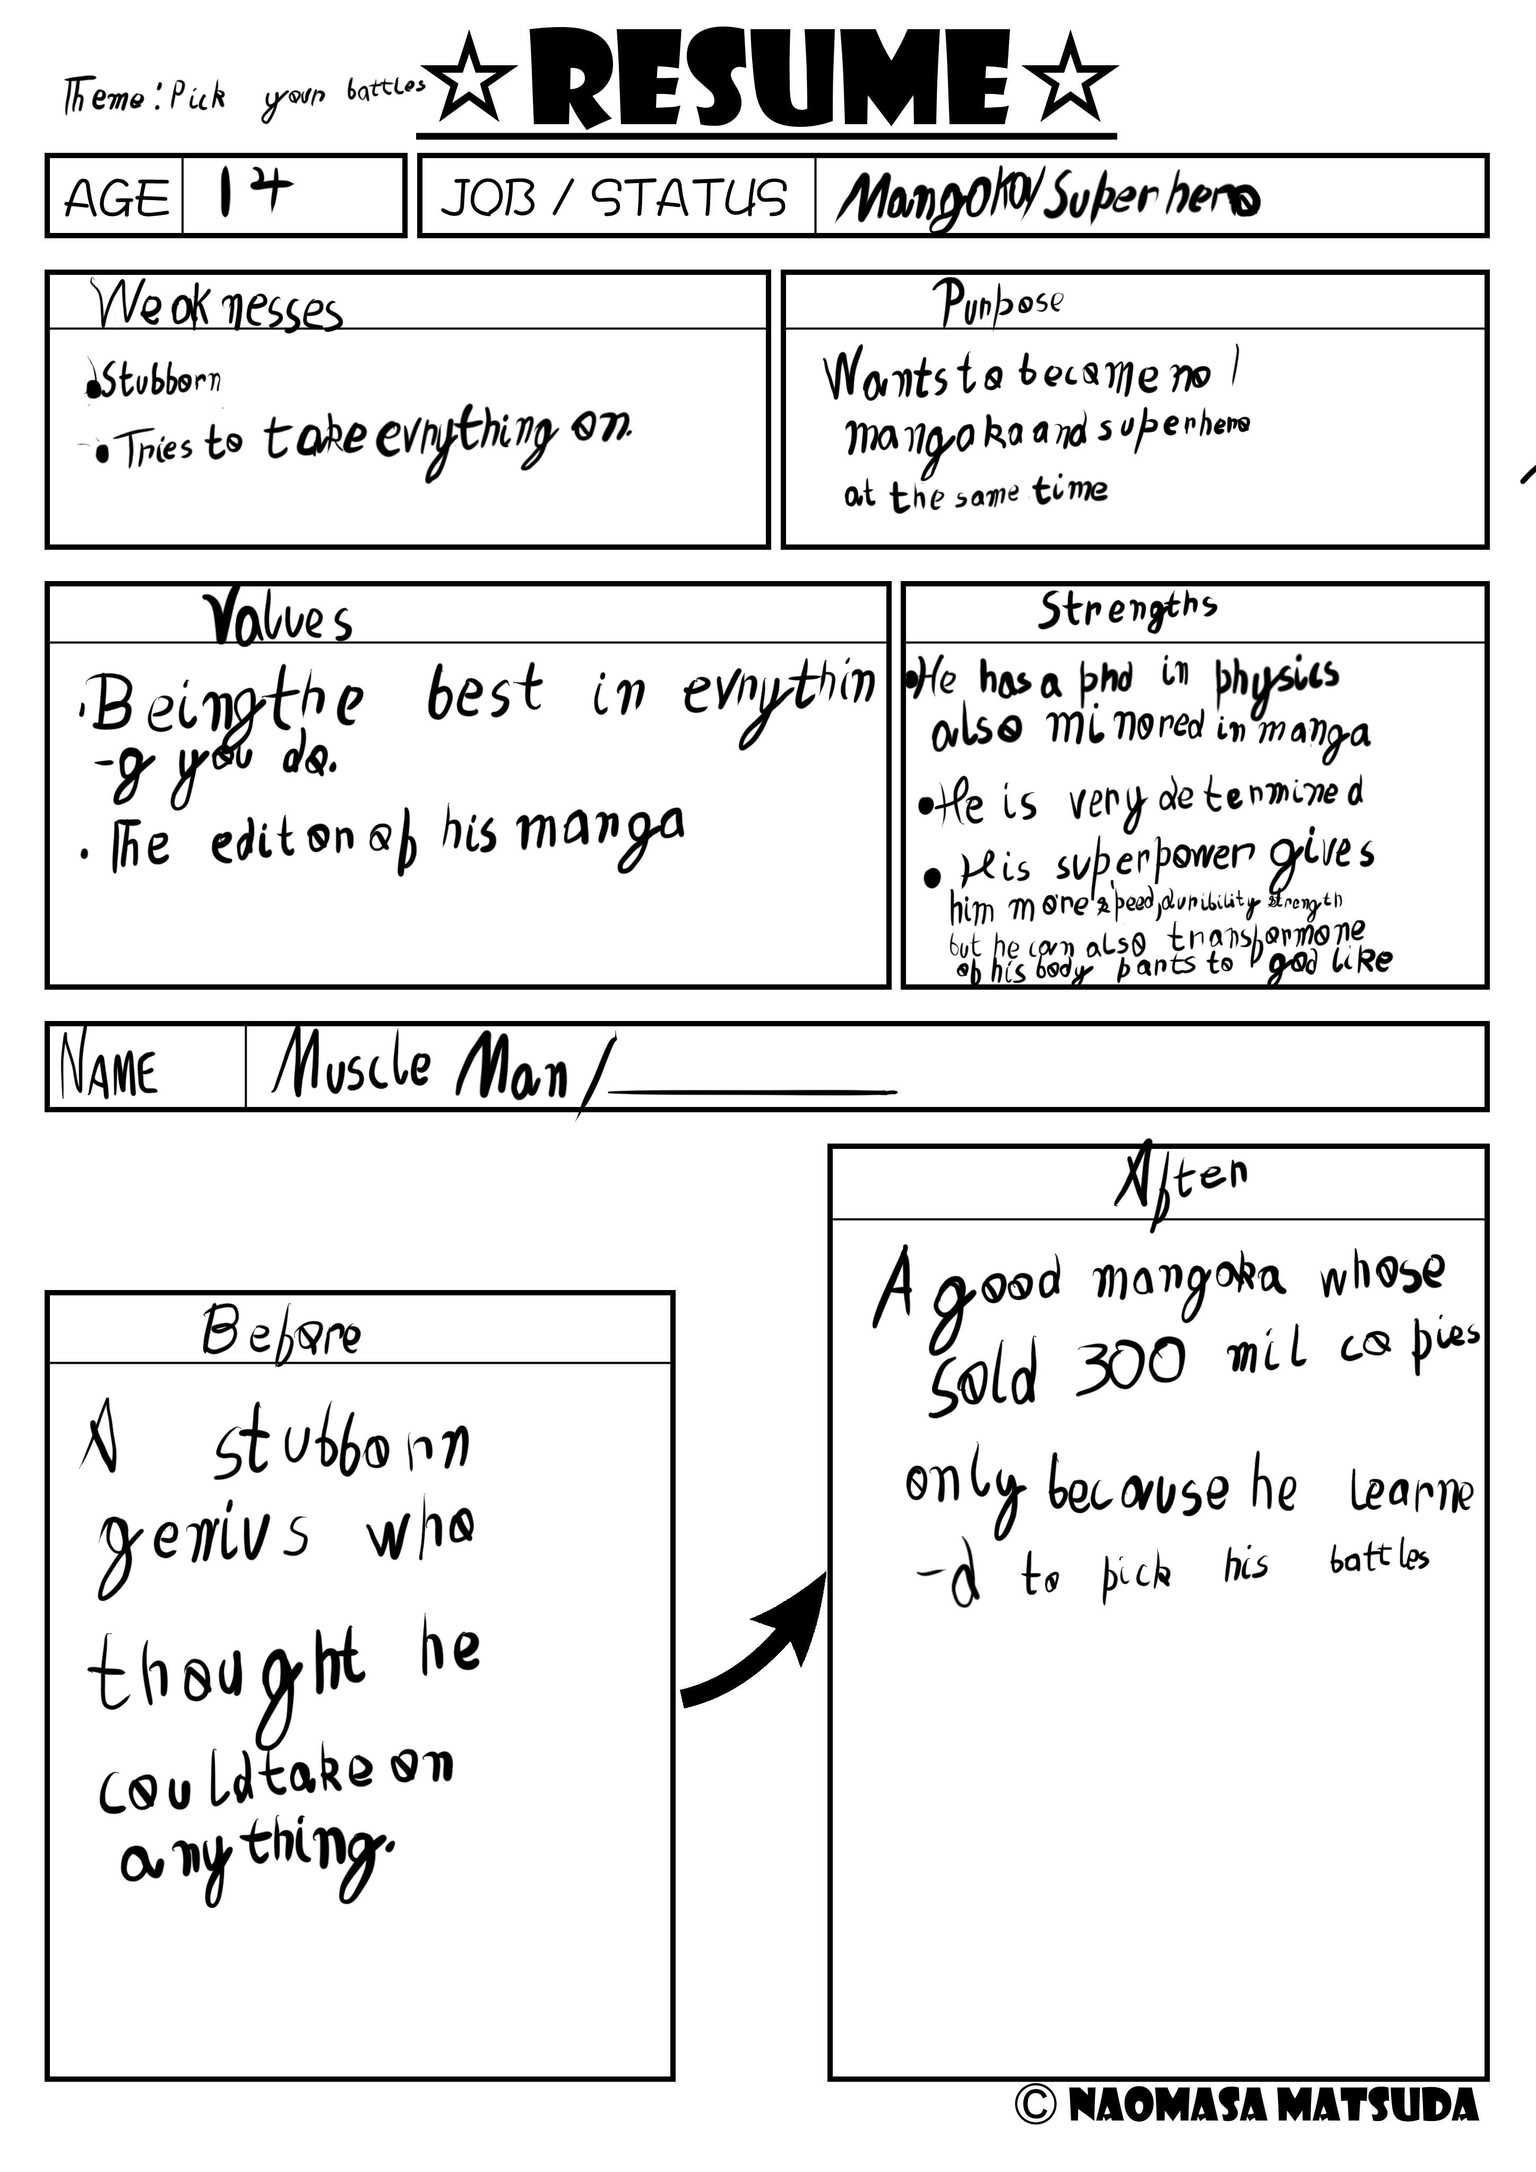 Theme: Pick your battles
☆RESUME☆
AGE 14
JOB / STATUS Mangaka/Superhero
Weaknesses
•Stubborn
•Tries to take evrything on.
Purpose
Wants to become no 1
mangaka and superhero
at the same time
Values
·Being the best in evrythin
-g you do.
·The editor of his manga
Strengths
•He has a phd in physics
also minored in manga
•He is very determined
•His superpower gives
him more speed, duribility strength
but he can also transform one
of his body parts to god like
NAME Muscle Man/
Before
A stubborn
genius who
thought he
could take on
anything.
After
A good mangaka whose
sold 300 mil copies
only because he learne
-d to pick his battles
© NAOMASA MATSUDA